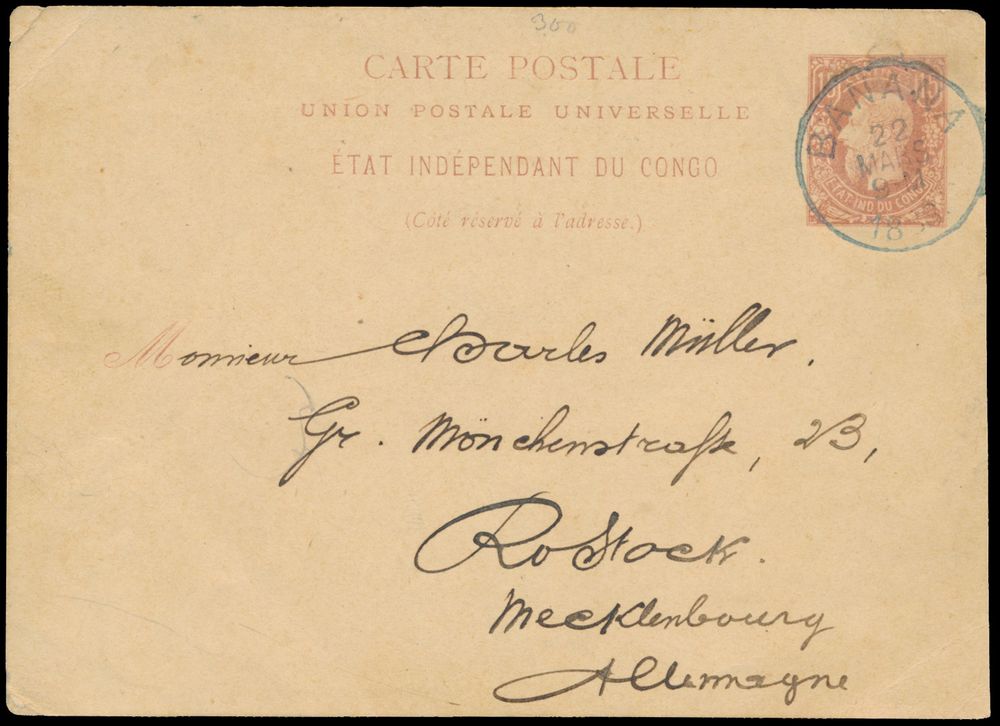 300
CARTE POSTALE
UNION POSTALE UNIVERSELLE
ÉTAT INDÉPENDANT DU CONGO
(Côté réservé à l'adresse.)
15
ÉTAT IND DU CONGO
BANANA
22
MARS
9-M
18
Monsieur Charles Müller.
Gr. Mönchenstraße, 23,
Rostock.
Mecklenbourg
Allemagne